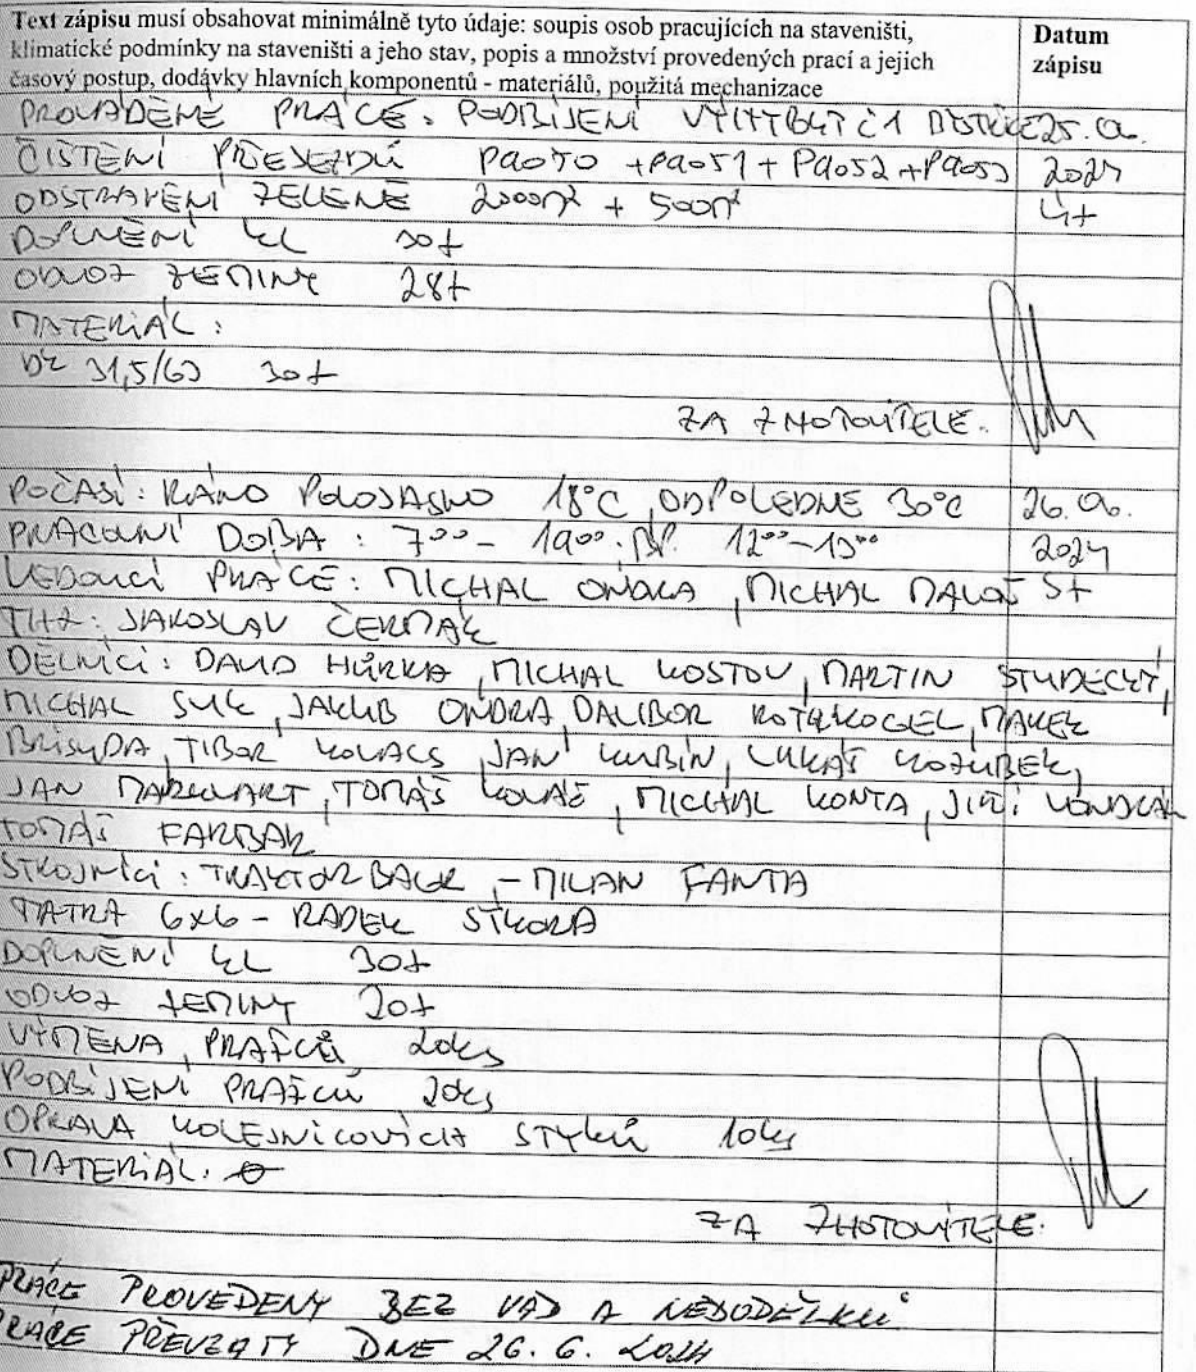 Text zápisu musí obsahovat minimálně tyto údaje: soupis osob pracujících na staveništi,
klimatické podmínky na staveništi a jeho stav, popis a množství provedených prací a jejich
časový postup, dodávky hlavních komponentů - materiálů, použitá mechanizace
Datum
zápisu
PROVÁDĚNÉ PRÁCE: PODBÍJENÍ VÝHYBKY Č1 25.06.
ČIŠTĚNÍ PŘEJEZDŮ P9050 + P9051 + P9052 + P9053 2024
ODSTRANĚNÍ ZELENĚ 2000m² + 500m² ÚT
DOPLNĚNÍ KL 30t
ODVOZ ZEMINY 28t
MATERIÁL:
31,5/63 30t
ZA ZHOTOVITELE:
POČASÍ: RÁNO POLOJASNO 18°C, ODPOLEDNE 30°C 26.06.
PRACOVNÍ DOBA: 7⁰⁰ - 19⁰⁰. 12⁰⁰-13⁰⁰ 2024
VEDOUCÍ PRÁCE: MICHAL ONDRA, MICHAL ST
THZ: JAROSLAV ČERMÁK
DĚLNÍCI: DAVID HŮRKA, MICHAL KOSTOV, MARTIN STUDECKÝ,
MICHAL SUK, JAKUB ONDRA, DALIBOR MAREK
BRISUDA, TIBOR KOVACS, JAN KUBÍN, LUKÁŠ KOZUBEK,
JAN MARKVART, TOMÁŠ KOVÁČ, MICHAL KONTA, JIŘÍ
TOMÁŠ FARBAR
STROJNÍCI: TRAKTORBAGR - MILAN FANTA
TATRA 6x6 - RADEK SÝKORA
DOPLNĚNÍ KL 30t
ODVOZ ZEMINY 20t
VÝMĚNA PRAŽCŮ 20ks
PODBÍJENÍ PRAŽCŮ 20ks
OPRAVA KOLEJNICOVÝCH STYKŮ 10ks
MATERIÁL: 0
ZA ZHOTOVITELE:
PRÁCE PROVEDENY BEZ VAD A NEDODĚLKŮ
PRÁCE PŘEVZATY DNE 26. 6. 2024